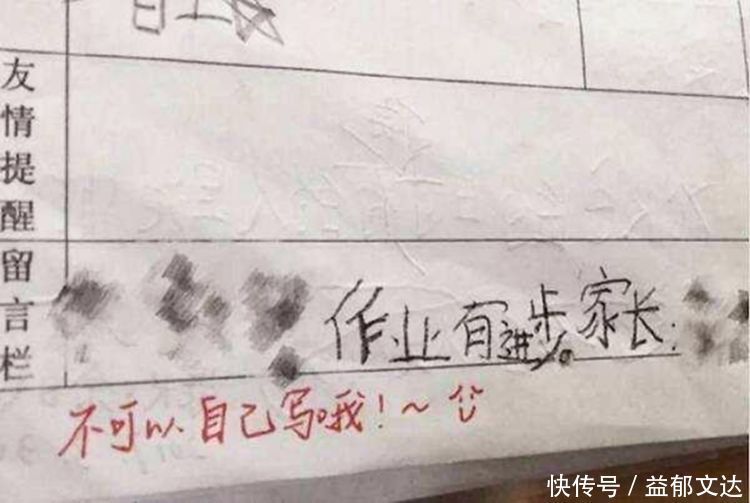 友情提醒
留言栏
作业有进步。家长:
不可以自己写哦!~
快传号/益郁文达